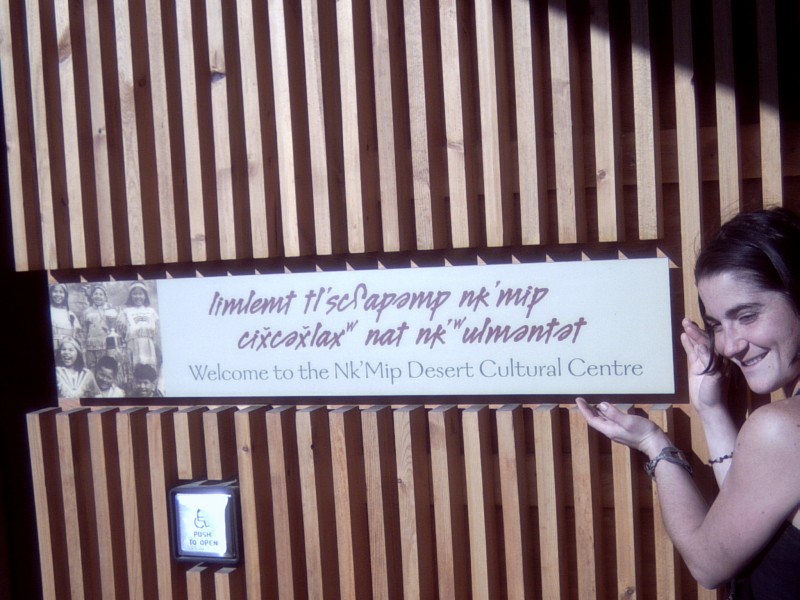 limlemt tl'scʕapəmp nk'mip
cix̌cəx̌laxʷ nat nk'ʷulməntət
Welcome to the Nk'Mip Desert Cultural Centre
PUSH
TO OPEN